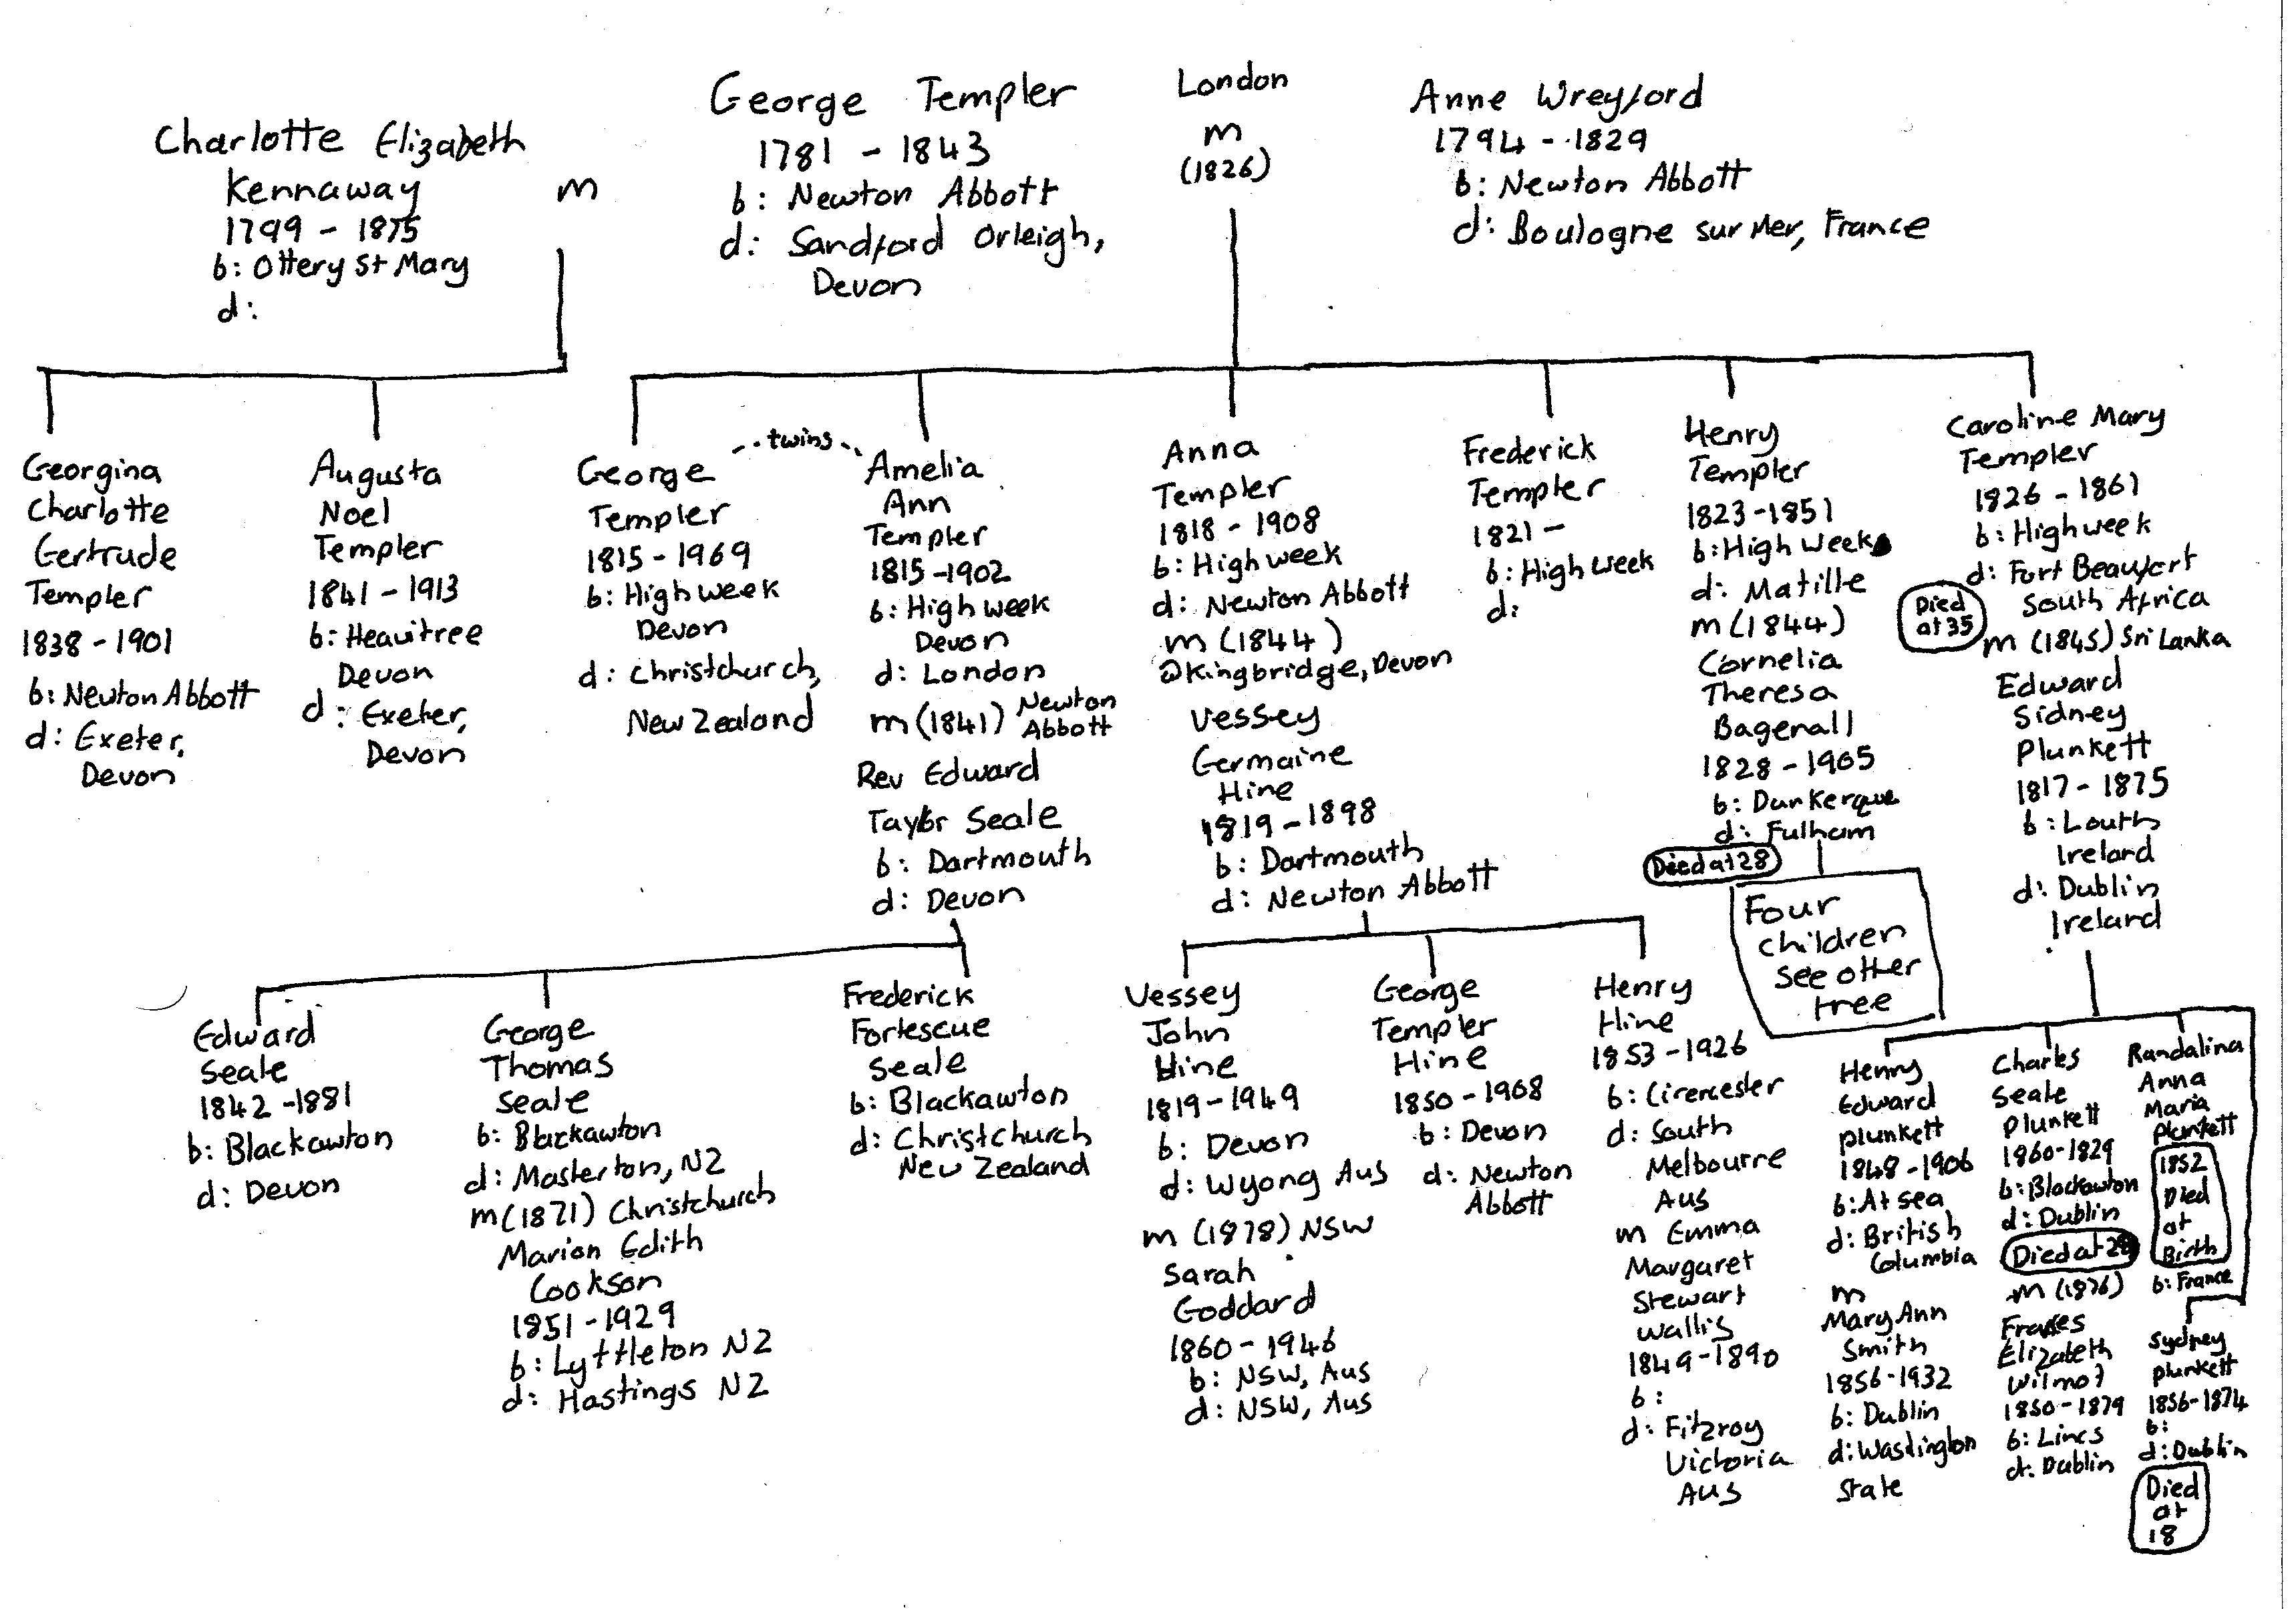 Charlotte Elizabeth
Kennaway
1799 - 1875
b: Ottery St Mary
d:
m
George Templer
1781 - 1843
b: Newton Abbott
d: Sandford Orleigh,
Devon
London
m
(1826)
Anne Wreyford
1794 - 1829
b: Newton Abbott
d: Boulogne sur Mer, France
Georgina
Charlotte
Gertrude
Templer
1838 - 1901
b: Newton Abbott
d: Exeter,
Devon
Augusta
Noel
Templer
1841 - 1913
b: Heavitree
Devon
d: Exeter,
Devon
George
Templer
1815 - 1969
b: Highweek
Devon
d: Christchurch,
New Zealand
- - twins - -
Amelia
Ann
Templer
1815 - 1902
b: Highweek
Devon
d: London
m (1841) Newton
Abbott
Rev Edward
Taylor Seale
b: Dartmouth
d: Devon
Anna
Templer
1818 - 1908
b: Highweek
d: Newton Abbott
m (1844)
@Kingbridge, Devon
Vessey
Germaine
Hine
1819 - 1898
b: Dartmouth
d: Newton Abbott
Frederick
Templer
1821 -
b: High Week
d:
Henry
Templer
1823 - 1851
b: High Week
d: Matille
m (1844)
Cornelia
Theresa
Bagenall
1828 - 1905
b: Dunkerque
d: Fulham
Died at 28
Four
children
see other
tree
Caroline Mary
Templer
1826 - 1861
b: Highweek
d: Fort Beaufort
South Africa
Died
at 35
m (1845) Sri Lanka
Edward
Sidney
Plunkett
1817 - 1875
b: Louth
Ireland
d: Dublin
Ireland
Edward
Seale
1842 - 1881
b: Blackawton
d: Devon
George
Thomas
Seale
b: Blackawton
d: Masterton, NZ
m (1871) Christchurch
Marion Edith
Cookson
1851 - 1929
b: Lyttleton NZ
d: Hastings NZ
Frederick
Fortescue
Seale
b: Blackawton
d: Christchurch
New Zealand
Vessey
John
Hine
1819 - 1949
b: Devon
d: Wyong Aus
m (1878) NSW
Sarah
Goddard
1860 - 1946
b: NSW, Aus
d: NSW, Aus
George
Templer
Hine
1850 - 1908
b: Devon
d: Newton
Abbott
Henry
Hine
1853 - 1926
b: Cirencester
d: South
Melbourne
Aus
m Emma
Margaret
Stewart
Wallis
1849 - 1890
b:
d: Fitzroy
Victoria
Aus
Henry
Edward
Plunkett
1848 - 1906
b: At sea
d: British
Columbia
m
Mary Ann
Smith
1856 - 1932
b: Dublin
d: Washington
State
Charles
Seale
Plunkett
1860 - 1829
b: Blackawton
d: Dublin
Died at 28
m (1876)
Frances
Elizabeth
Wilmot
1850 - 1879
b: Lincs
d: Dublin
Randalina
Anna
Maria
Plunkett
1852
Died
at
Birth
b: France
Sydney
Plunkett
1856 - 1874
b:
d: Dublin
Died
at
18